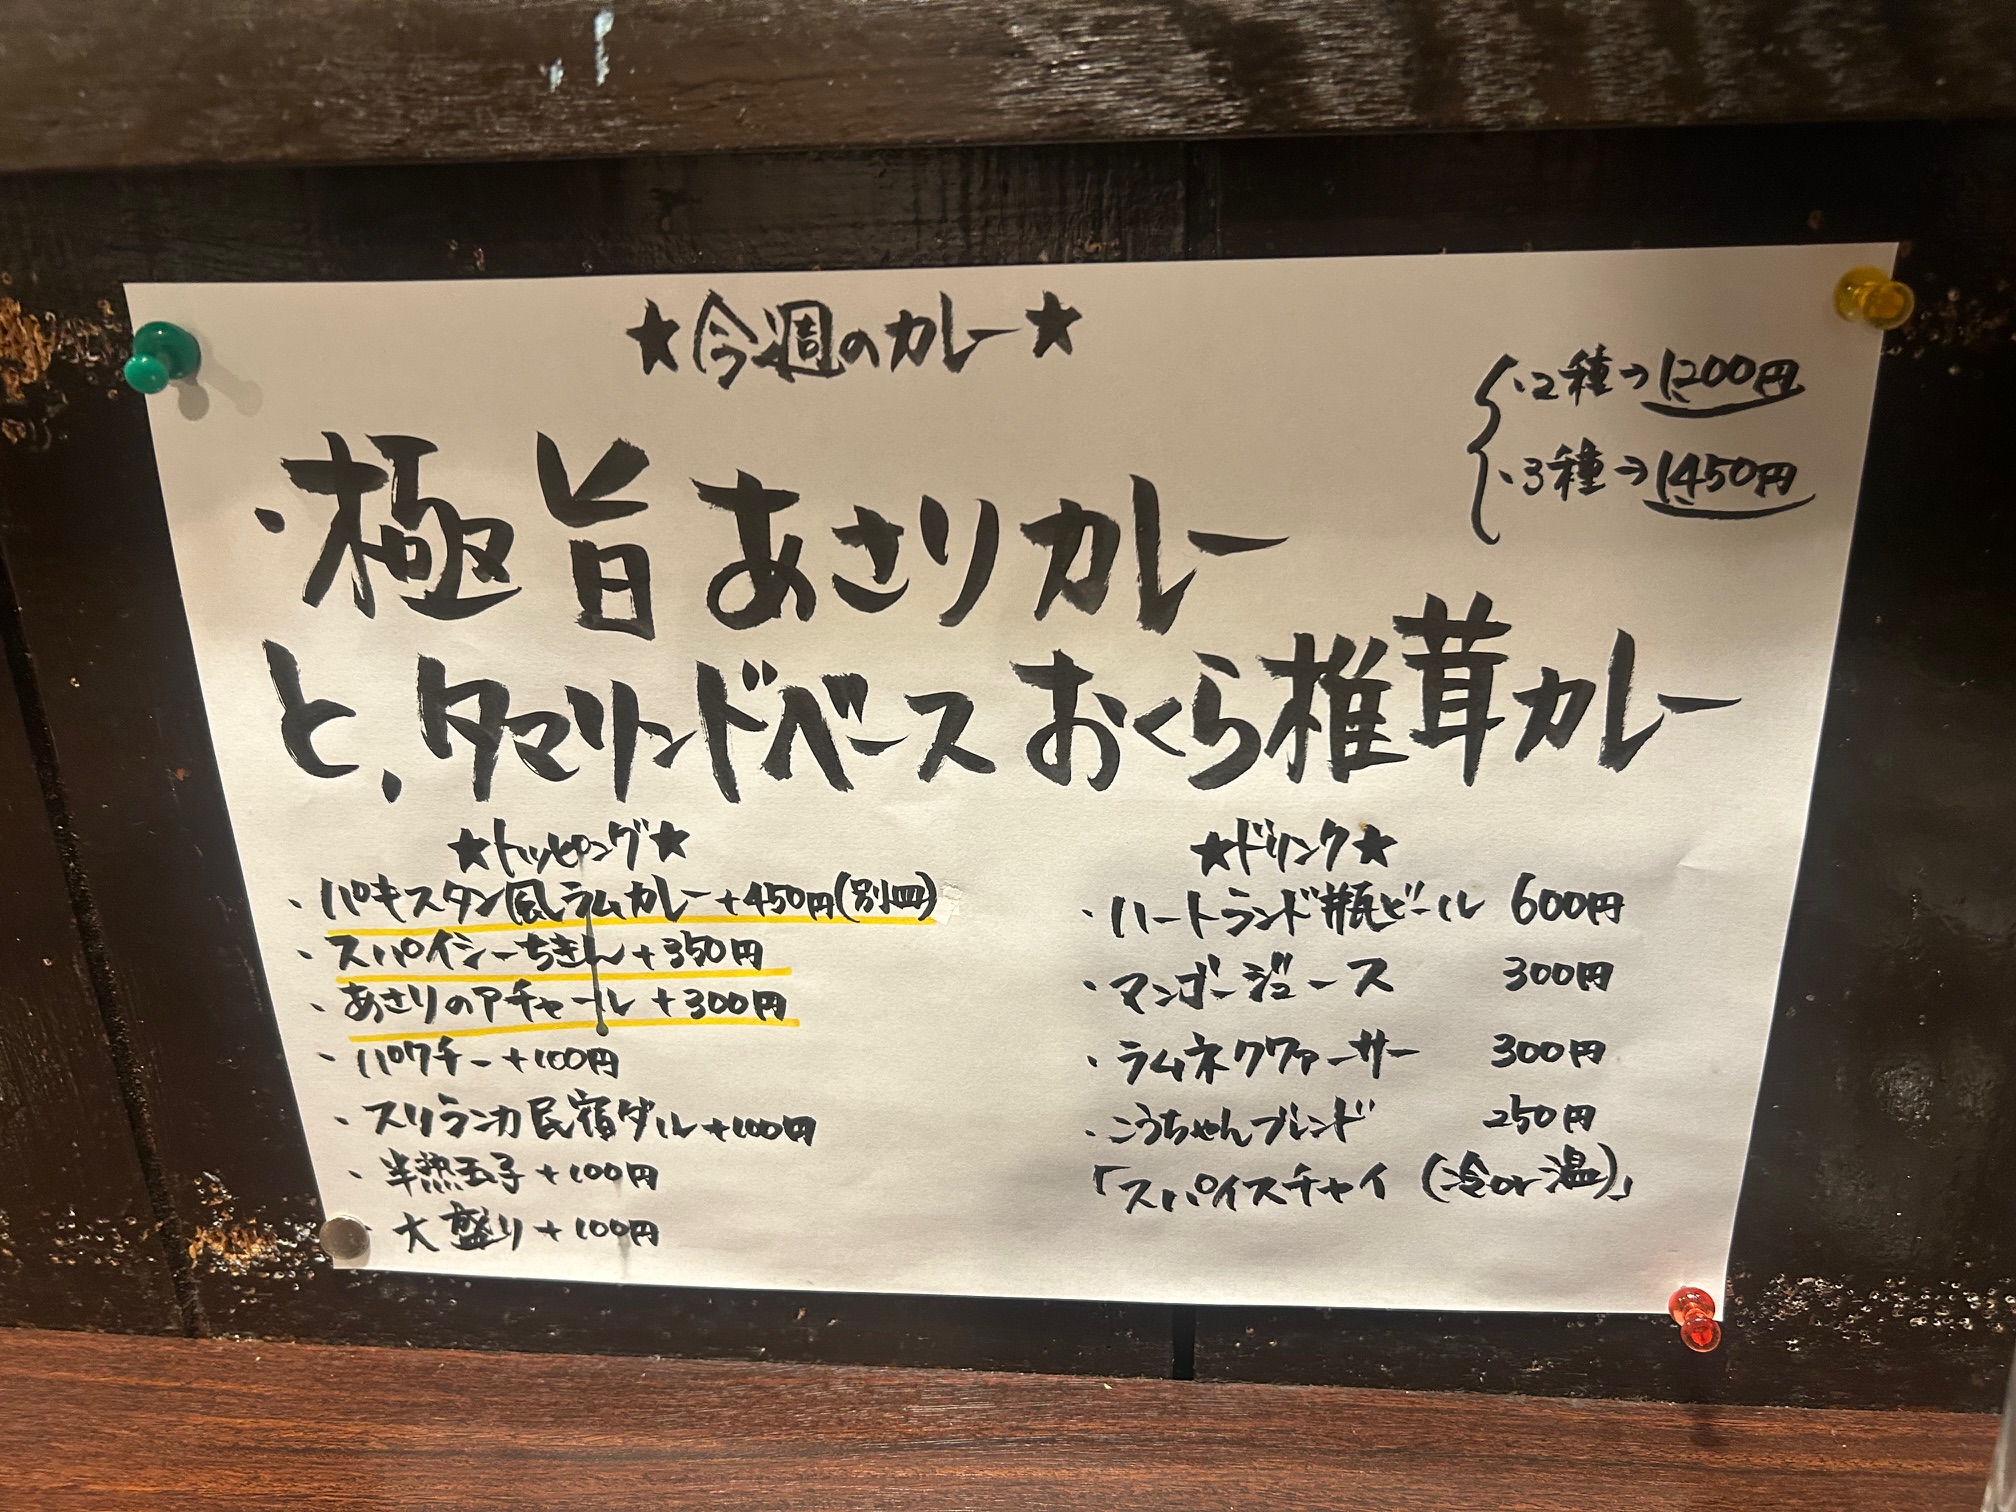 ★今週のカレー★
・2種→1200円
・3種→1450円
・極旨あさりカレー
と、タマリンドベースおくら椎茸カレー
★トッピング★
・パキスタン風ラムカレー+450円(別皿)
・スパイシーちきん+350円
・あさりのアチャール+300円
・パクチー+100円
・スリランカ民宿ダル+100円
・半熟玉子+100円
・大盛り+100円
★ドリンク★
・ハートランド瓶ビール 600円
・マンゴージュース 300円
・ラムネクワァーサー 300円
・こうちゃんブレンド 250円
「スパイスチャイ(冷or温)」